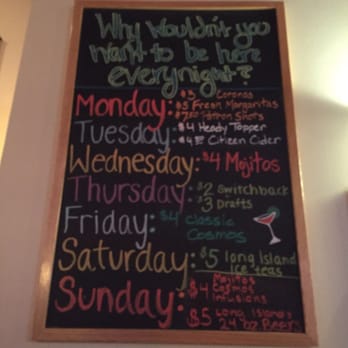 Why Wouldn't you
want to be here
everynight?
Monday: $3 Coronas
$5 Fresh Margaritas
$7 Patron Shots
Tuesday: $4 Heady Topper
$4 Citizen Cider
Wednesday: $4 Mojitos
Thursday: $2 Switchback
$3 Drafts
Friday: $4 Classic
Cosmos
Saturday: $5 Long Island
Ice teas
Sunday: $4 Mojitos
Cosmos
Infusions
$5 Long Islands
24 oz Beers